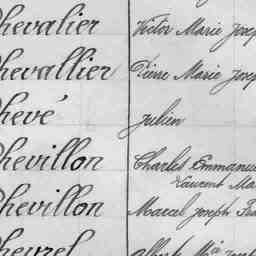 hevalier Victor Marie Josep
hevallier Pierre Marie Josep
hevé Julien
hevillon Charles Emmanue
Vincent Ma
hevillon Marcel Joseph Fra
hevrel Alberte Mie